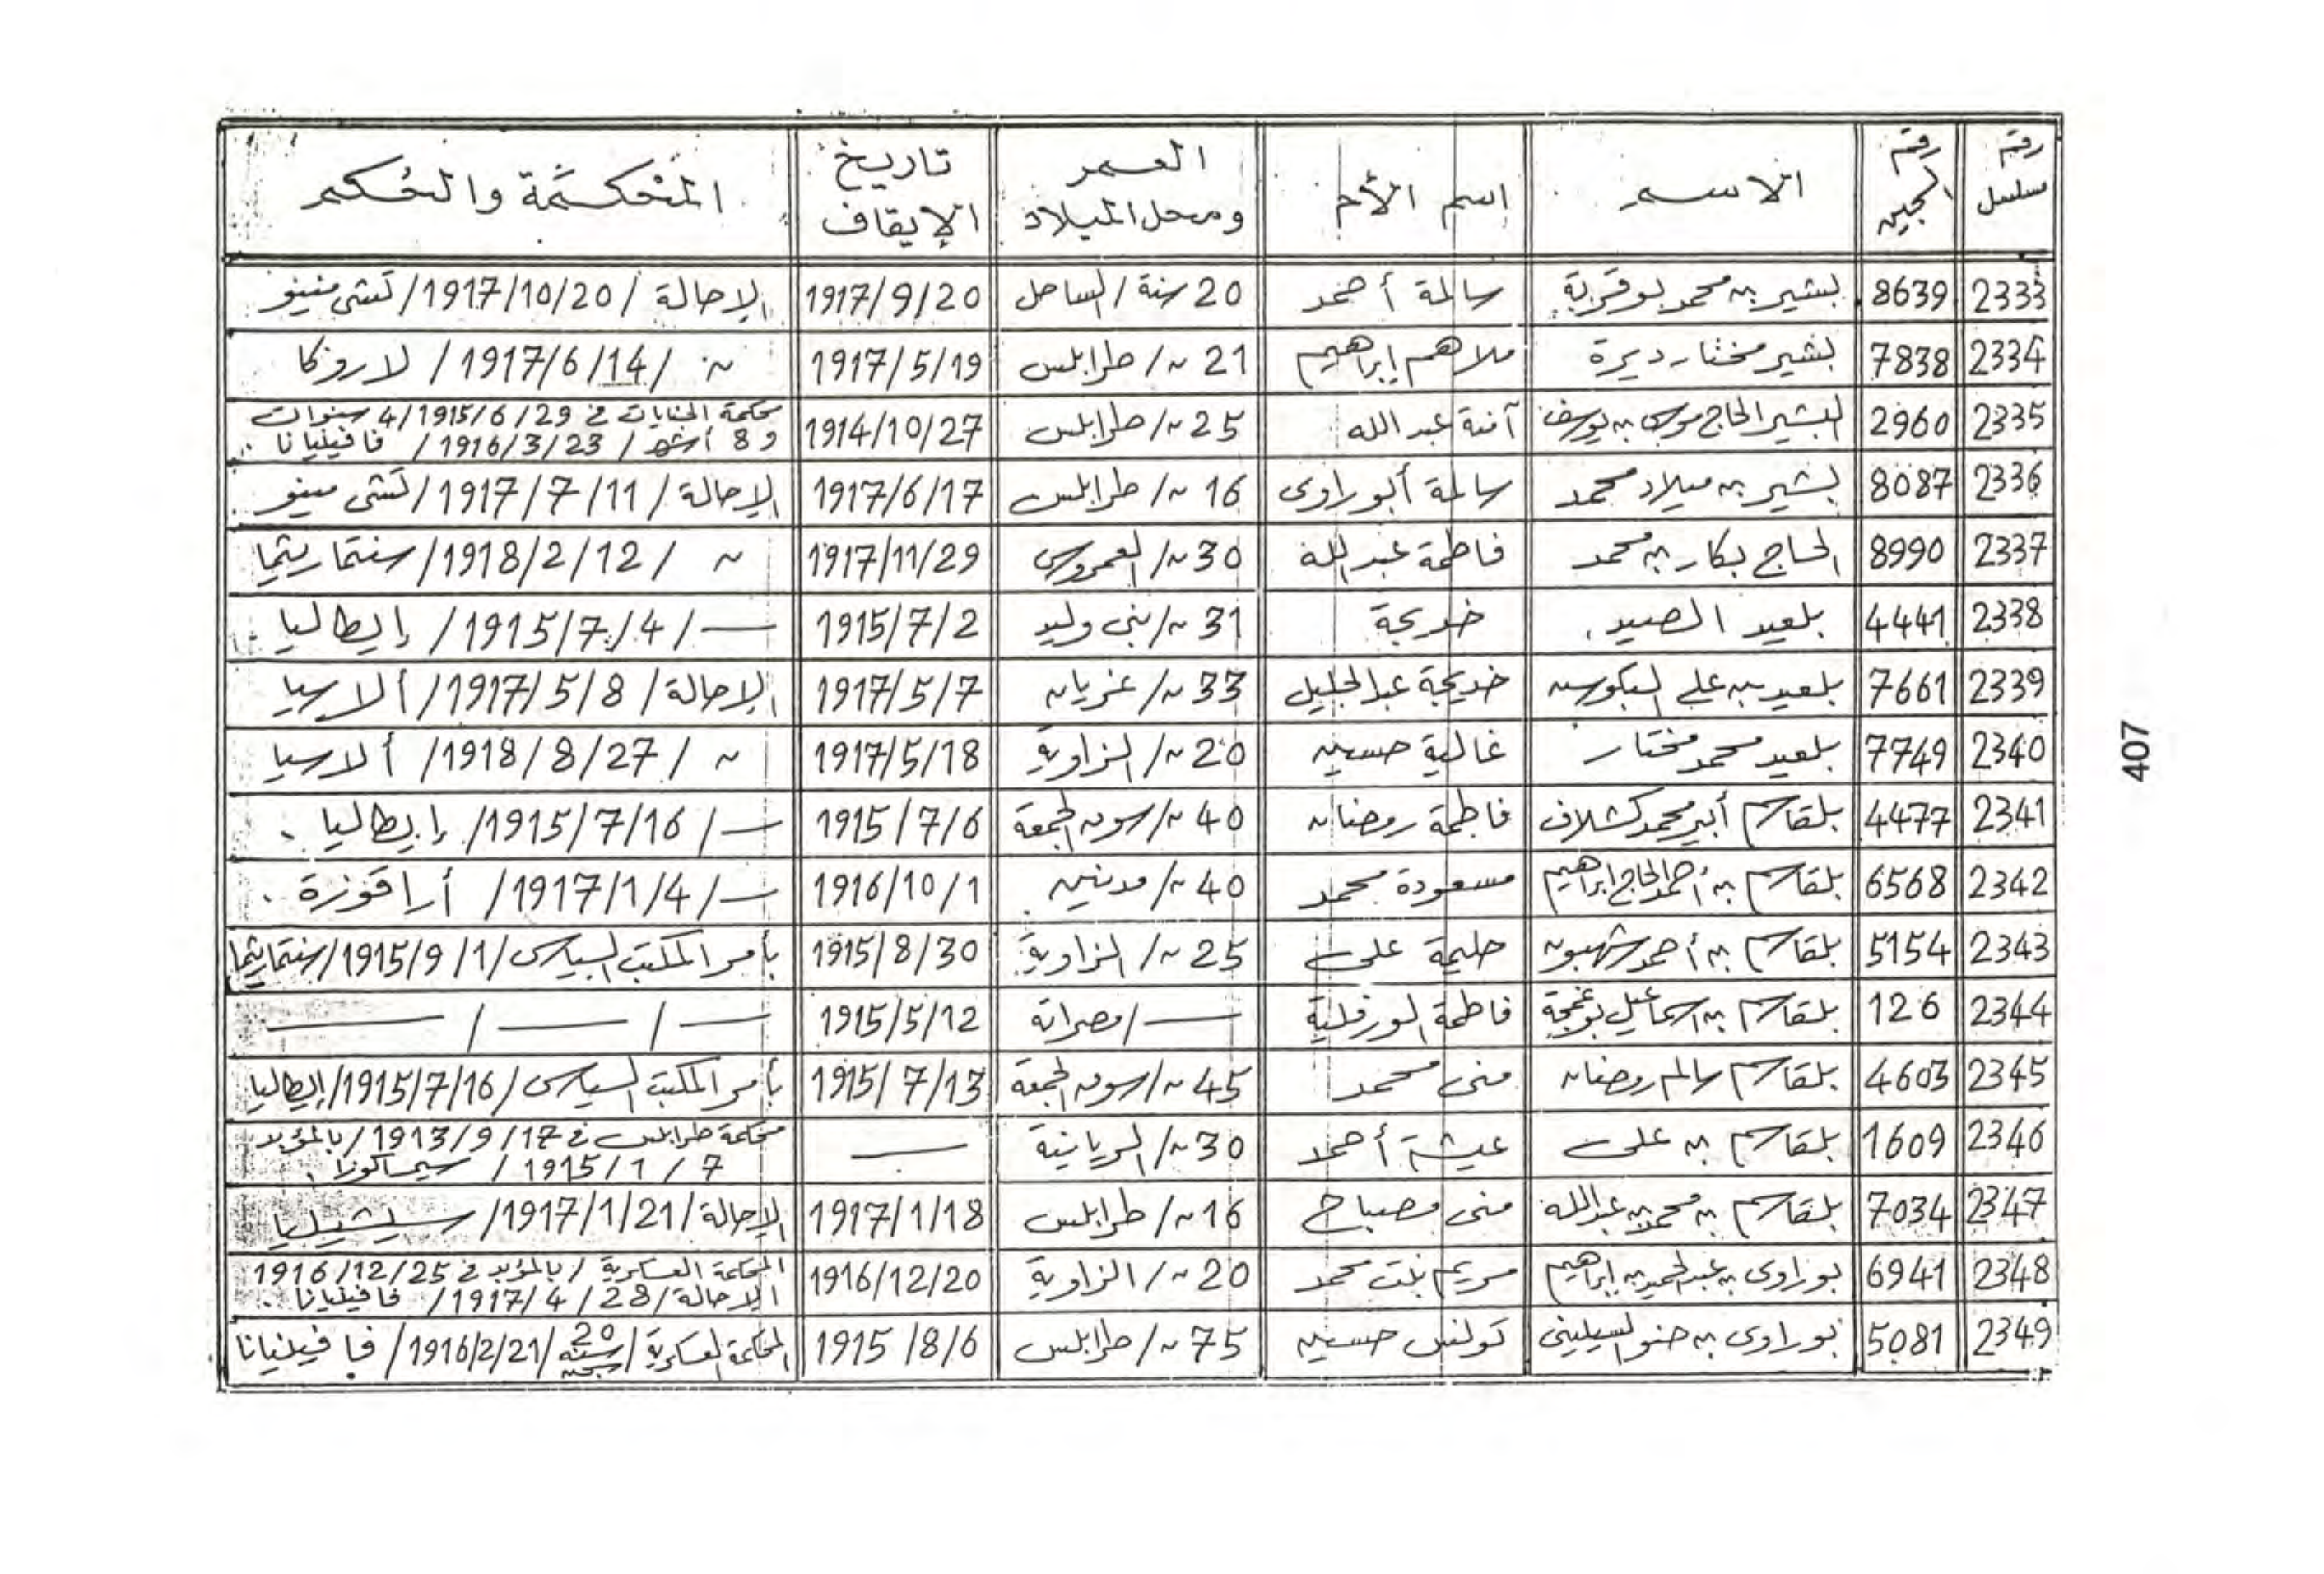 رقم مسلسل | رقم السجين | الاسم | اسم الأم | العمر ومحل الميلاد | تاريخ الإيقاف | المحكمة والحكم
2333 | 8639 | بشير بن محمد بوقرية | سالمة أحمد | 20 سنة / الساحل | 1917/9/20 | الإحالة / 1917/10/20 / تشي منينو
2334 | 7838 | بشير مختار ديرة | ملاهم إبراهيم | 21 ~ / طرابلس | 1917/5/19 | ~ / 1917/6/14 / لاروكا
2335 | 2960 | البشير الحاج موسى بن يوسف | آمنة عبد الله | 25 ~ / طرابلس | 1914/10/27 | محكمة الجنايات في 1915/6/29 / 4 سنوات
و 8 أشهر / 1916/3/23 / فافينيانا
2336 | 8087 | بشير بن ميلاد محمد | سالمة أبوراوى | 16 ~ / طرابلس | 1917/6/17 | الإحالة / 1917/7/11 / تشي مينو
2337 | 8990 | الحاج بكار بن محمد | فاطمة عبد الله | 30 ~ / العمروس | 1917/11/29 | ~ / 1918/2/12 / سنتماريتما
2338 | 4441 | بلعيد الصيد | خديجة | 31 ~ / بنى وليد | 1915/7/2 | — / 1915/7/4 / إيطاليا
2339 | 7661 | بلعيد بن علي البكوش | خديجة عبد الجليل | 33 ~ / غريان | 1917/5/7 | الإحالة / 1917/5/8 / ألارسيا
2340 | 7749 | بلعيد محمد مختار | غالية حسين | 20 ~ / الزاوية | 1917/5/18 | ~ / 1918/8/27 / ألارسيا
2341 | 4477 | بلقاسم محمد كشلاف | فاطمة رمضان | 40 ~ / سوق الجمعة | 1915/7/6 | — / 1915/7/16 / إيطاليا
2342 | 6568 | بلقاسم بن أحمد الحاج إبراهيم | مسعودة محمد | 40 ~ / مدنين | 1916/10/1 | — / 1917/1/4 / أراقوزة
2343 | 5154 | بلقاسم بن أحمد شهبون | حليمة على | 25 ~ / الزاوية | 1915/8/30 | بأمر المكتب السياسى / 1915/9/1 / سنتماريتما
2344 | 126 | بلقاسم بن اسماعيل بوغمجة | فاطمة الورفلية | — / مصراتة | 1915/5/12 | — / — / —
2345 | 4603 | بلقاسم سالم رمضان | منى محمد | 45 ~ / سوق الجمعة | 1915/7/13 | بأمر المكتب السياسى / 1915/7/16 / إيطاليا
2346 | 1609 | بلقاسم بن على | عيشة أحمد | 30 ~ / الريانية | — | محكمة طرابلس في 1913/9/17 / بالمؤبد
1915/1/7 / سيراكوزا
2347 | 7034 | بلقاسم بن محمد بن عبدالله | منى مصباح | 16 ~ / طرابلس | 1917/1/18 | الإحالة / 1917/1/21 / سيشيليا
2348 | 6941 | بوراوى بن عبدالحميد بن إبراهيم | مريم بنت محمد | 20 ~ / الزاوية | 1916/12/20 | المحكمة العسكرية / بالمؤبد في 1916/12/25
الاحالة / 1917/4/28 / فافينيانا
2349 | 5081 | بوراوى بن حنو السيلينى | تونس حسين | 75 ~ / طرابلس | 1915/8/6 | المحكمة العسكرية / 20 سنة سجن / 1916/2/21 / فافينيانا
407